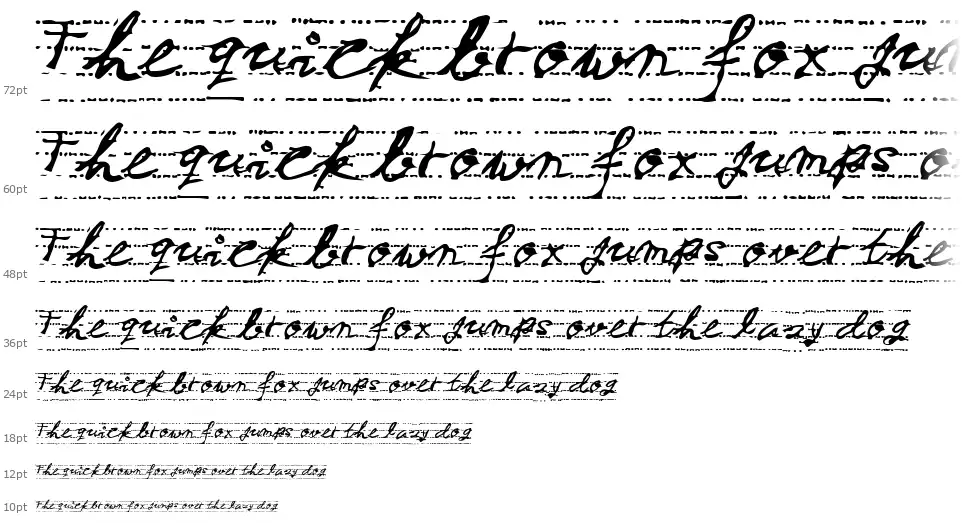 The quick brown fox ju
72pt
The quick brown fox jumps o
60pt
The quick brown fox jumps over the
48pt
The quick brown fox jumps over the lazy dog
36pt
The quick brown fox jumps over the lazy dog
24pt
The quick brown fox jumps over the lazy dog
18pt
The quick brown fox jumps over the lazy dog
12pt
The quick brown fox jumps over the lazy dog
10pt